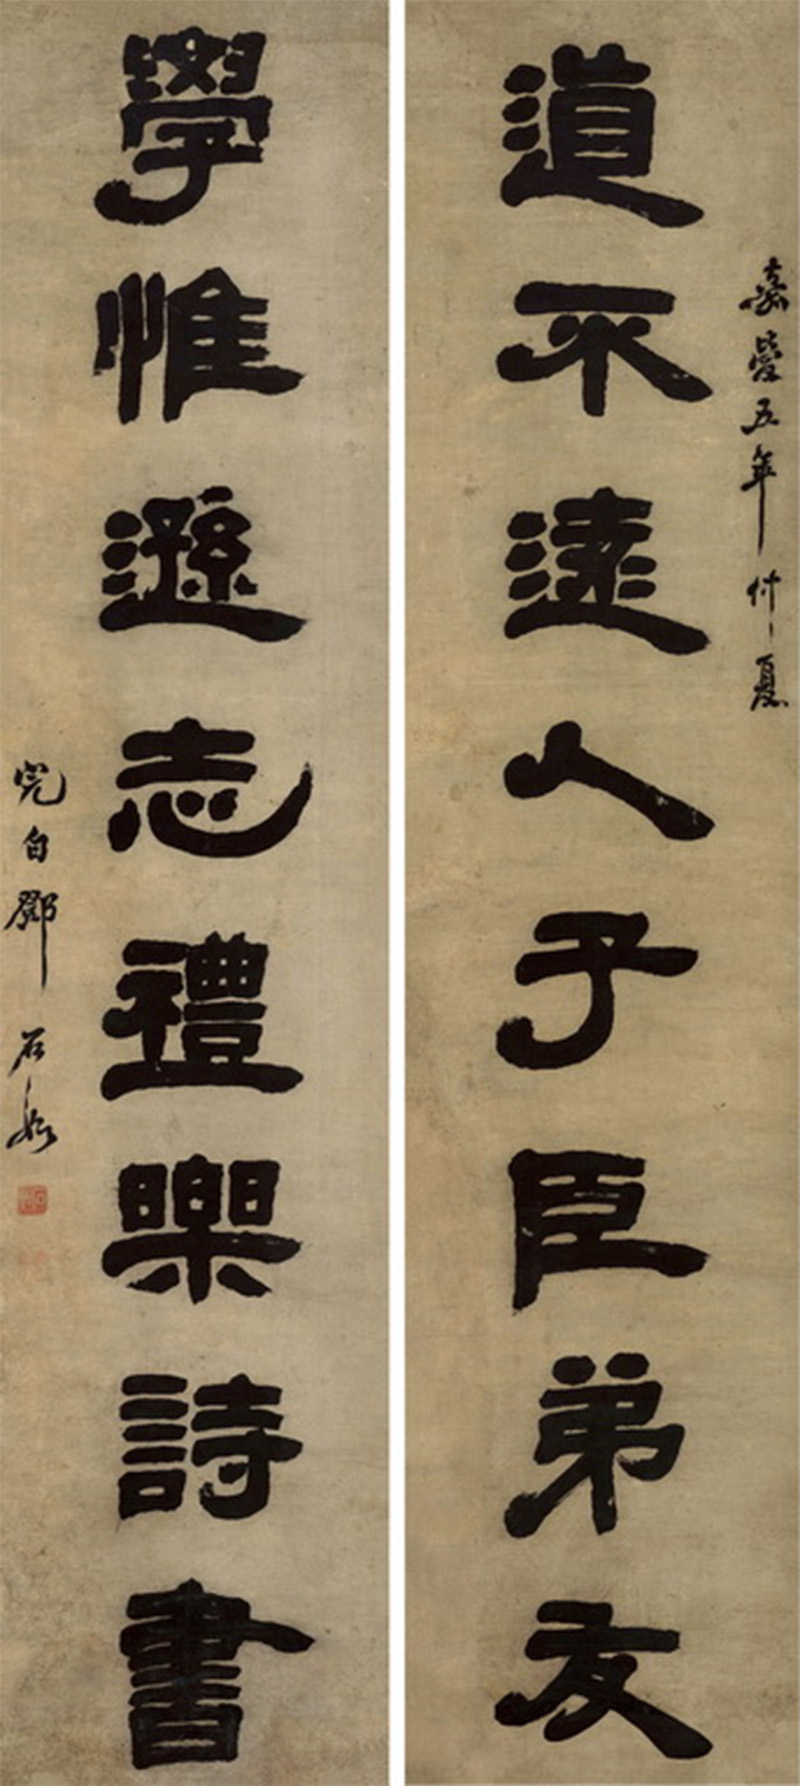 嘉慶五年仲夏
道不遠人子臣弟友
學惟遜志禮樂詩書
完白鄧石如